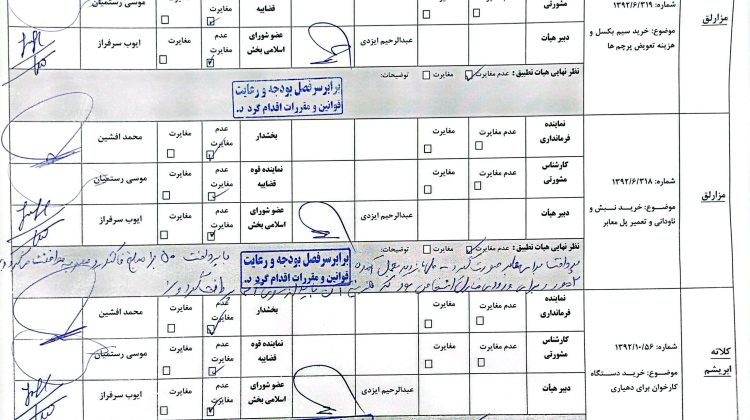 مزارلق
شماره: ۱۳۹۲/۶/۳۱۹
موضوع: خرید سیم بکسل و
هزینه تعویض پرچم ها
مشورتی
مغایرت
قضاییه
مغایرت
موسی رستمیان
دبیر هیات
عبدالرحیم ایزدی
عضو شورای
اسلامی بخش
عدم
مغایرت
مغایرت
ایوب سرفراز
نظر نهایی هیات تطبیق: عدم مغایرت مغایرت توضیحات:
برابر سرفصل بودجه و رعایت
قوانین و مقررات اقدام گردد.
مزارلق
شماره: ۱۳۹۲/۶/۳۱۸
موضوع: خرید نبش و
ناودانی و تعمیر پل معابر
نماینده
فرمانداری
عدم مغایرت
مغایرت
بخشدار
عدم
مغایرت
مغایرت
محمد افشین
کارشناس
مشورتی
عدم مغایرت
مغایرت
نماینده قوه
قضاییه
عدم
مغایرت
مغایرت
موسی رستمیان
دبیر هیات
عبدالرحیم ایزدی
عضو شورای
اسلامی بخش
عدم
مغایرت
مغایرت
ایوب سرفراز
نظر نهایی هیات تطبیق: عدم مغایرت مغایرت توضیحات:
برابر سرفصل بودجه و رعایت
قوانین و مقررات اقدام گردد.
کلاته
ابریشم
شماره: ۱۳۹۲/۱۰/۵۶
موضوع: خرید دستگاه
کارخوان برای دهیاری
نماینده
فرمانداری
عدم مغایرت
مغایرت
بخشدار
عدم
مغایرت
مغایرت
محمد افشین
کارشناس
مشورتی
عدم مغایرت
مغایرت
نماینده قوه
قضاییه
عدم
مغایرت
مغایرت
موسی رستمیان
دبیر هیات
عبدالرحیم ایزدی
عضو شورای
اسلامی بخش
عدم
مغایرت
مغایرت
ایوب سرفراز